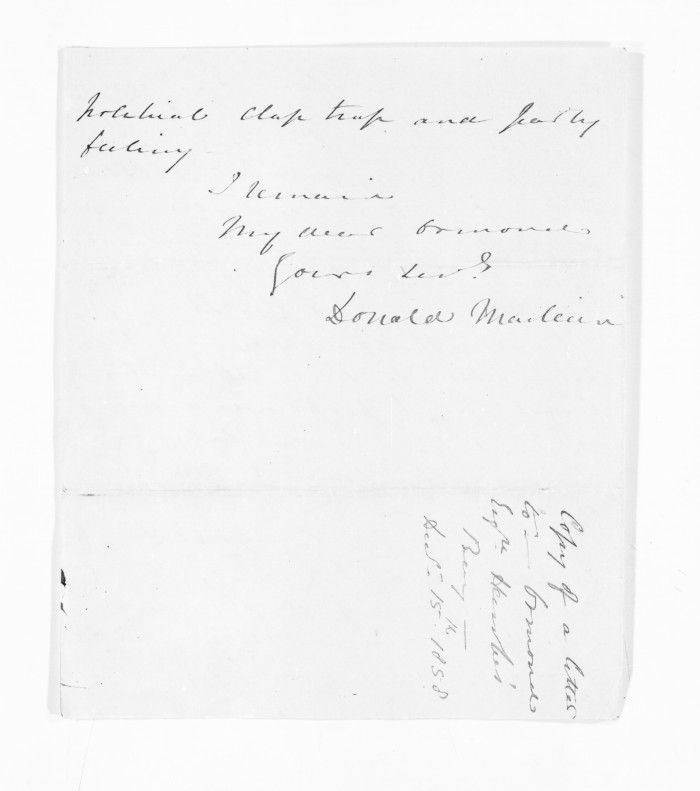 political clap trap and party
feeling
I remain
My dear Ormond
Yours
Donald McLean
Copy of a letter
to Ormond
Esqre Hawke's
Bay
Decr 15th 1858